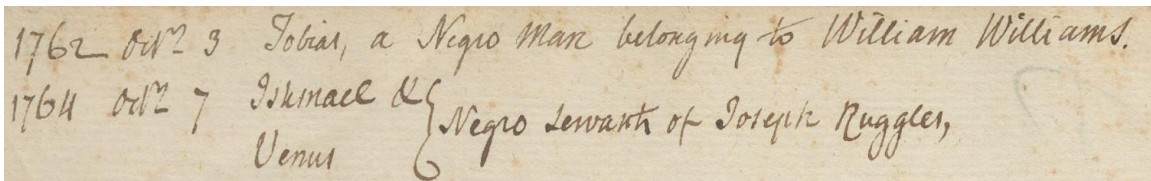 1762 Octr 3 Tobias, a Negro Man belonging to William Williams.
1764 Octr 7 Ishmael & { Negro Servants of Joseph Ruggles,
Venus